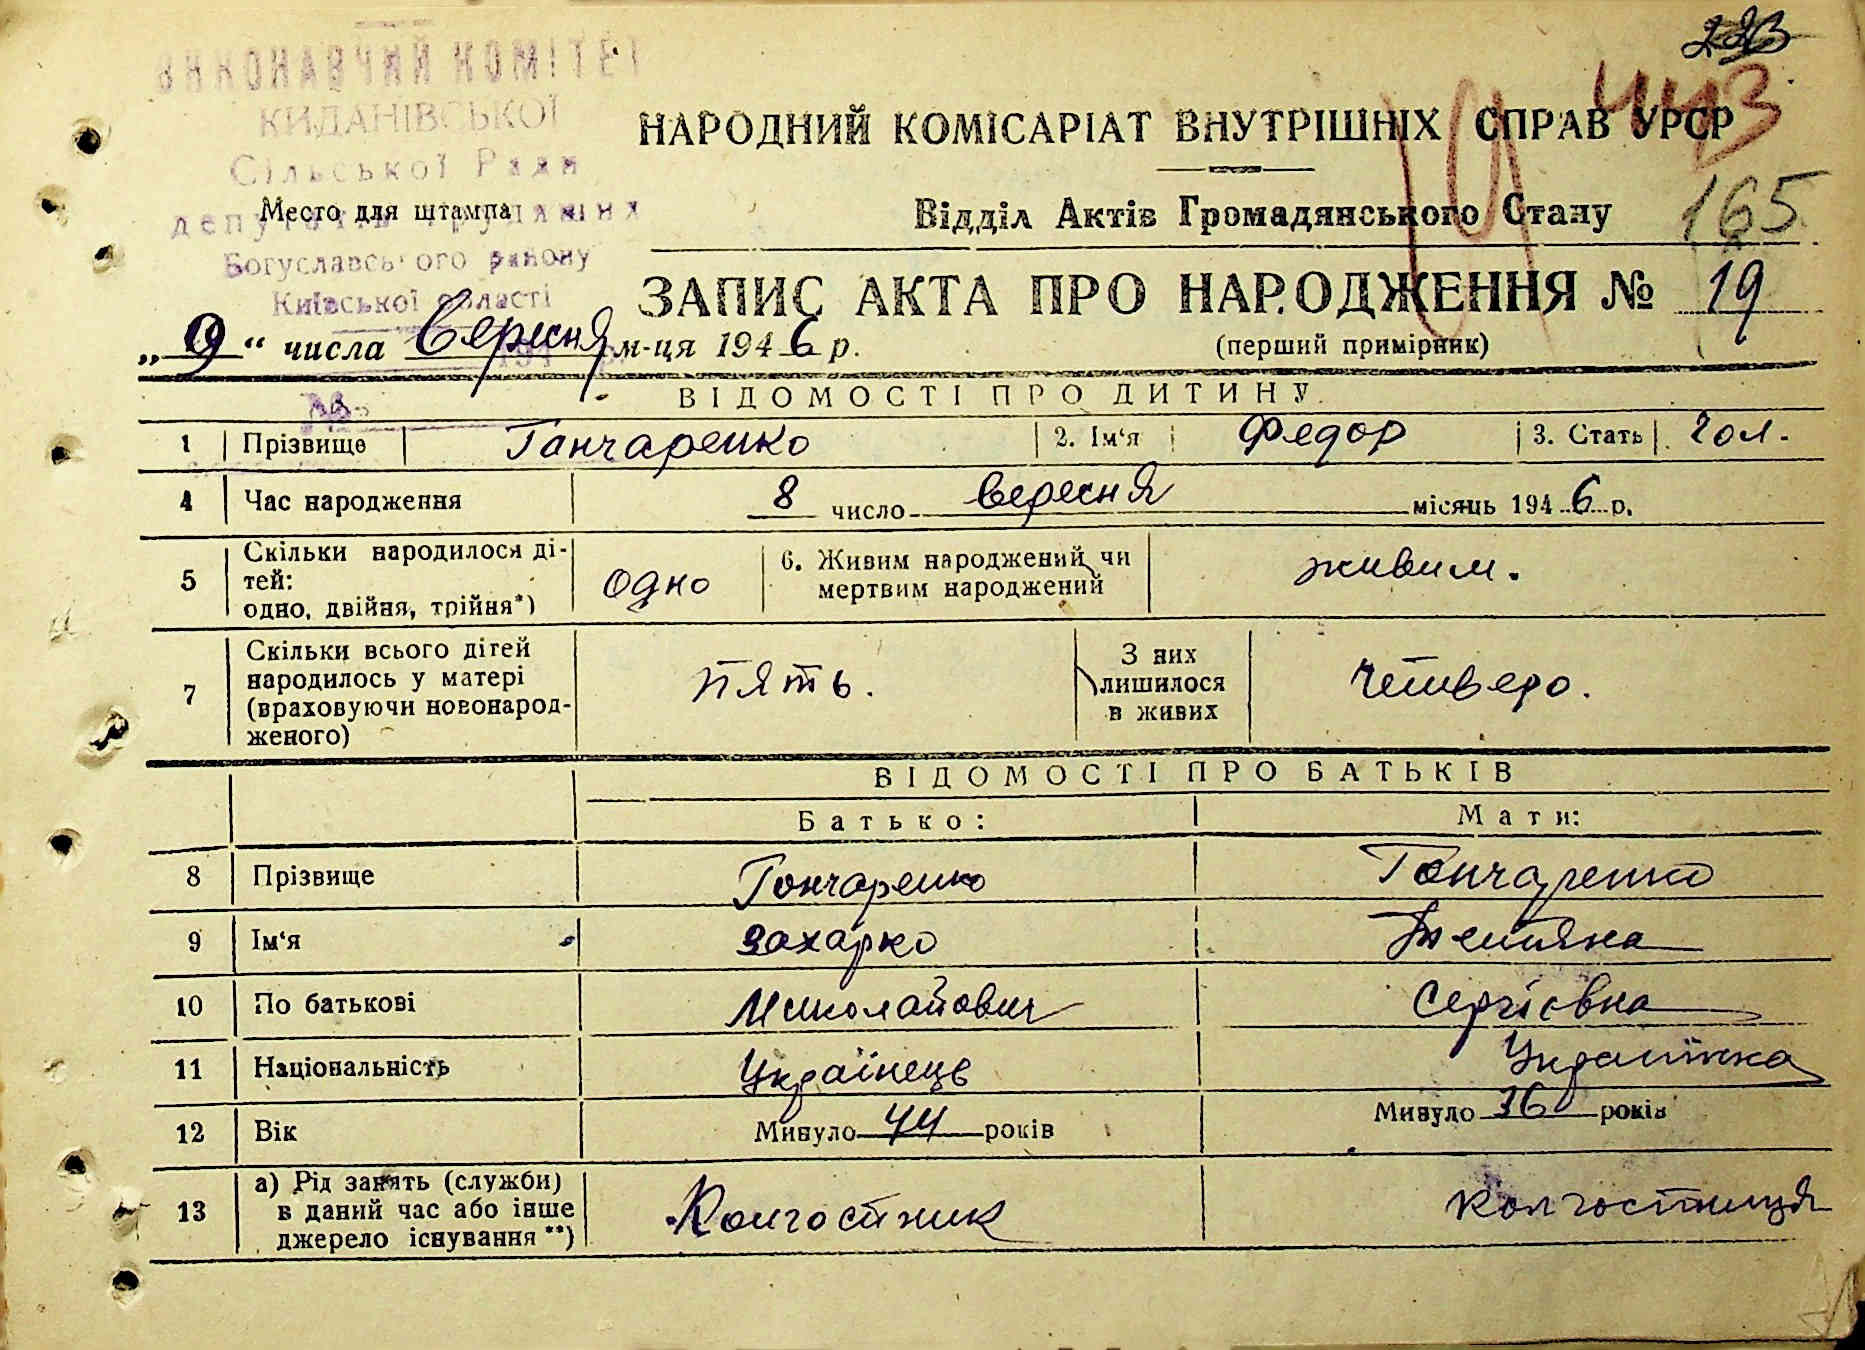 223
ВИКОНАВЧИЙ КОМІТЕТ
КИДАНІВСЬКОЇ
Сільської Ради
депутатів трудящих
Богуславського району
Київської області
443
НАРОДНИЙ КОМІСАРІАТ ВНУТРІШНІХ СПРАВ УРСР
Место для штампа
Відділ Актів Громадянського Стану
165
ЗАПИС АКТА ПРО НАРОДЖЕННЯ № 19
„9“ числа Вересня м-ця 1946 р.
(перший примірник)
№
ВІДОМОСТІ ПРО ДИТИНУ
1 Прізвище Ганчаренко 2. Ім‘я Федор 3. Стать Чол.
4 Час народження 8 число вересня місяць 1946 р.
5 Скільки народилося ді-
тей:
одно, двійня, трійня*) одно
6. Живим народжений чи
мертвим народжений живим.
7 Скільки всього дітей
народилось у матері
(враховуючи новонарод-
женого) пять.
З них
лишилося
в живих четверо.
ВІДОМОСТІ ПРО БАТЬКІВ
Батько: Мати:
8 Прізвище Гончаренко Гончаренко
9 Ім‘я Захарко Тетяна
10 По батькові Миколайович Сергієвна
11 Національність Українець Українка
12 Вік Минуло 44 років Минуло 36 років
13 а) Рід занять (служби)
в даний час або інше
джерело існування **) Колгостник колгостниця